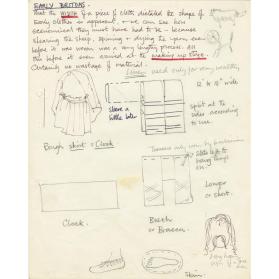 EARLY BRITONS
That the WIDTH of a piece of cloth dictated the shape of
early clothes is apparent, & we can see how
economical they must have had to be – because
shearing the sheep, spinning & drying the yarn, even
before it was woven was a very lengthy process. All
this before it even arrived at the making up stage.
Certainly no wastage of material.
Linen used only for very wealthy
12" to 18" wide
Sleeve a
little later
Split at the
sides according
to use.
Rough shirt or Cloak
Trousers only worn by horsemen
Slits left to
hang things
on.
Longer
or short.
Cloak.
Breth
or Braccae.
Skin